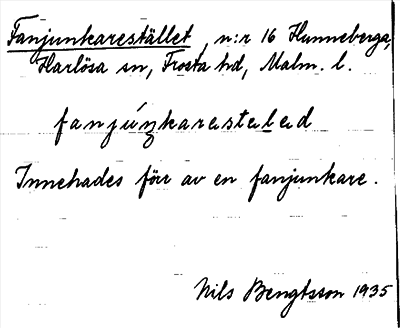 Fanjunkarestället, n:r 16 Hunneberga,
Harlösa sn, Frosta hd, Malm. l.
fanjúŋkarestaled
Innehades förr av en fanjunkare.
Nils Bengtsson 1935